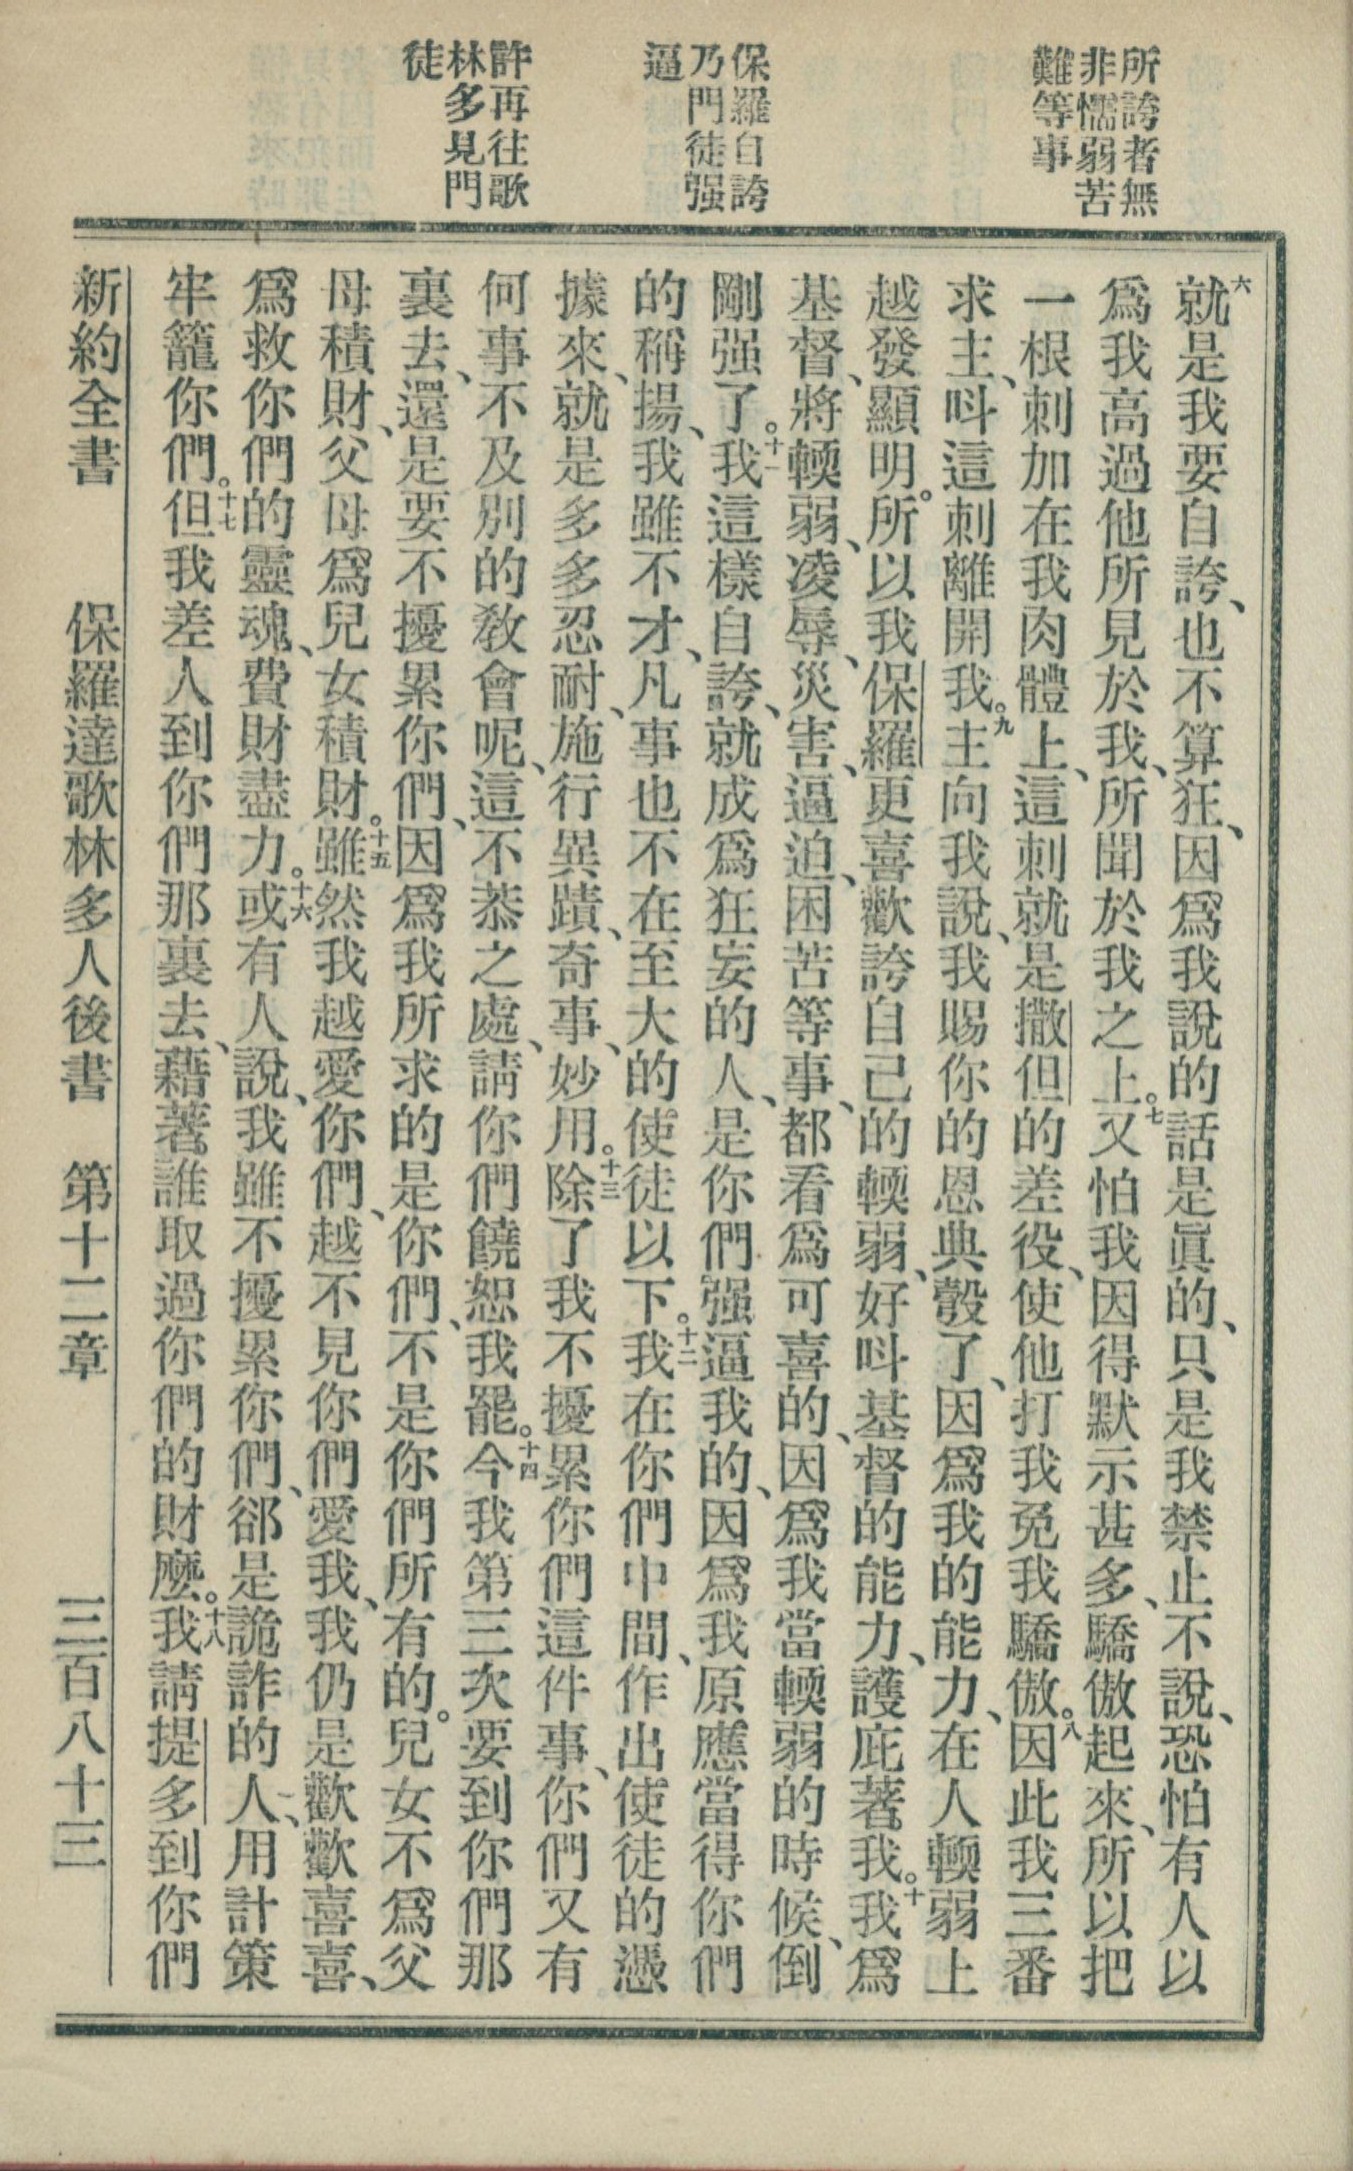 所誇者無
非懦弱苦
難等事
保羅自誇
乃門徒强
逼
許再往歌
林多見門
徒
六就是我要自誇、也不算狂、因爲我說的話是眞的、只是我禁止不說、恐怕有人以
爲我高過他所見於我、所聞於我之上。七又怕我因得默示甚多、驕傲起來、所以把
一根刺加在我肉體上、這刺就是撒但的差役、使他打我免我驕傲。八因此我三番
求主、呌這刺離開我。九主向我說、我賜你的恩典彀了、因爲我的能力、在人輭弱上
越發顯明。所以我保羅更喜歡誇自己的輭弱、好呌基督的能力、護庇著我。十我爲
基督、將輭弱、凌辱、災害、逼迫、困苦等事、都看爲可喜的、因爲我當輭弱的時候、倒
剛强了。十一我這樣自誇、就成爲狂妄的人、是你們强逼我的、因爲我原應當得你們
的稱揚、我雖不才、凡事也不在至大的使徒以下。十二我在你們中間、作出使徒的憑
據來、就是多多忍耐、施行異蹟、奇事、妙用。十三除了我不擾累你們這件事、你們又有
何事不及別的敎會呢、這不恭之處、請你們饒恕我罷。十四今我第三次要到你們那
裏去、還是要不擾累你們、因爲我所求的是你們、不是你們所有的。兒女不爲父
母積財、父母爲兒女積財。十五雖然我越愛你們、越不見你們愛我、我仍是歡歡喜喜、
爲救你們的靈魂、費財盡力。十六或有人說、我雖不擾累你們、郤是詭詐的人、用計策
牢籠你們。十七但我差人到你們那裏去、藉著誰取過你們的財麼。十八我請提多到你們
新約全書 保羅達歌林多人後書 第十二章 三百八十三